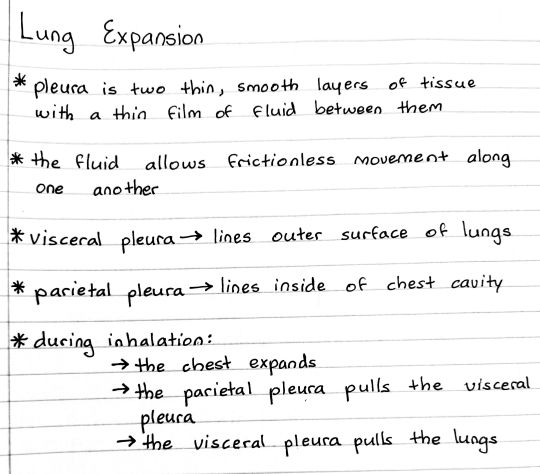 Lung Expansion
* pleura is two thin, smooth layers of tissue
with a thin film of fluid between them
* the fluid allows frictionless movement along
one another
* visceral pleura → lines outer surface of lungs
* parietal pleura → lines inside of chest cavity
* during inhalation:
→ the chest expands
→ the parietal pleura pulls the visceral
pleura
→ the visceral pleura pulls the lungs